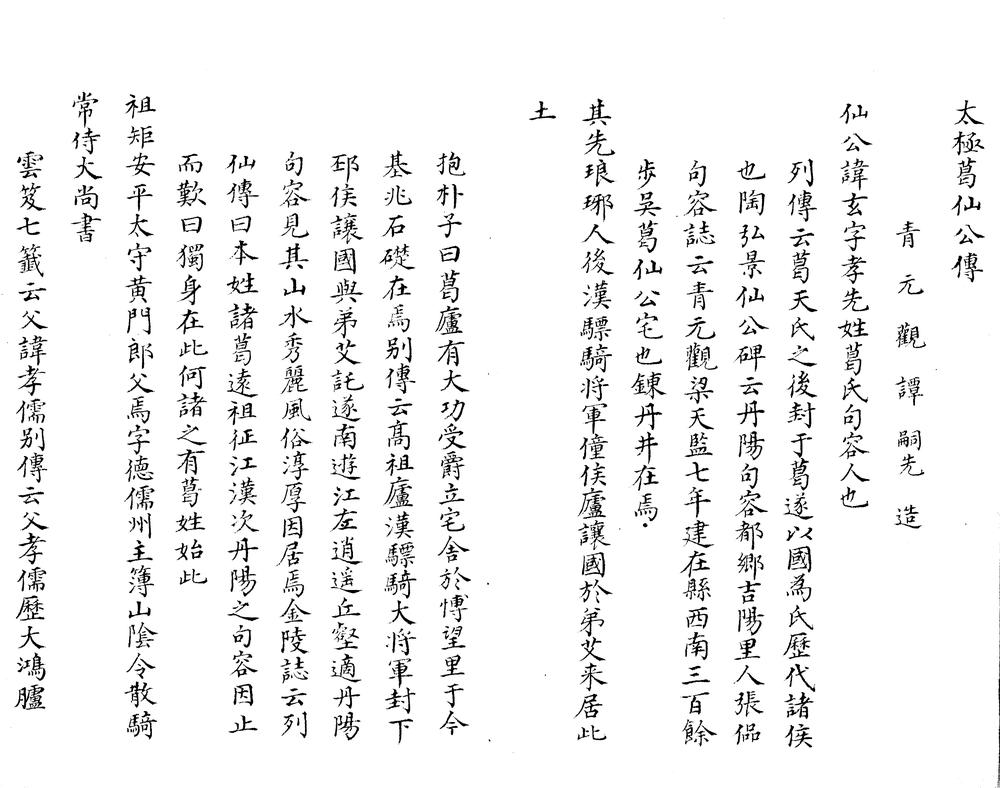 太極葛仙公傳
青元觀譚嗣先造
仙公諱玄字孝先姓葛氏句容人也
列傳云葛天氏之後封于葛遂以國為氏歷代諸侯
也陶弘景仙公碑云丹陽句容都鄉吉陽里人張佋
句容誌云青元觀梁天監七年建在縣西南三百餘
步吳葛仙公宅也鍊丹井在焉
其先琅琊人後漢驃騎将軍僮侯廬讓國於弟艾来居此
土
抱朴子曰葛廬有大功受爵立宅舍於愽望里于今
基兆石礎在焉别傳云髙祖廬漢驃騎大将軍封下
邳侯讓國與弟艾託遂南遊江左逍遥丘壑適丹陽
句容見其山水秀麗風俗淳厚因居焉金陵誌云列
仙傳曰本姓諸葛遠祖征江漢次丹陽之句容因止
而歎曰獨身在此何諸之有葛姓始此
祖矩安平太守黄門郎父焉字德儒州主簿山陰令散騎
常侍大尚書
雲笈七籤云父諱孝儒别傳云父孝儒歷大鴻臚